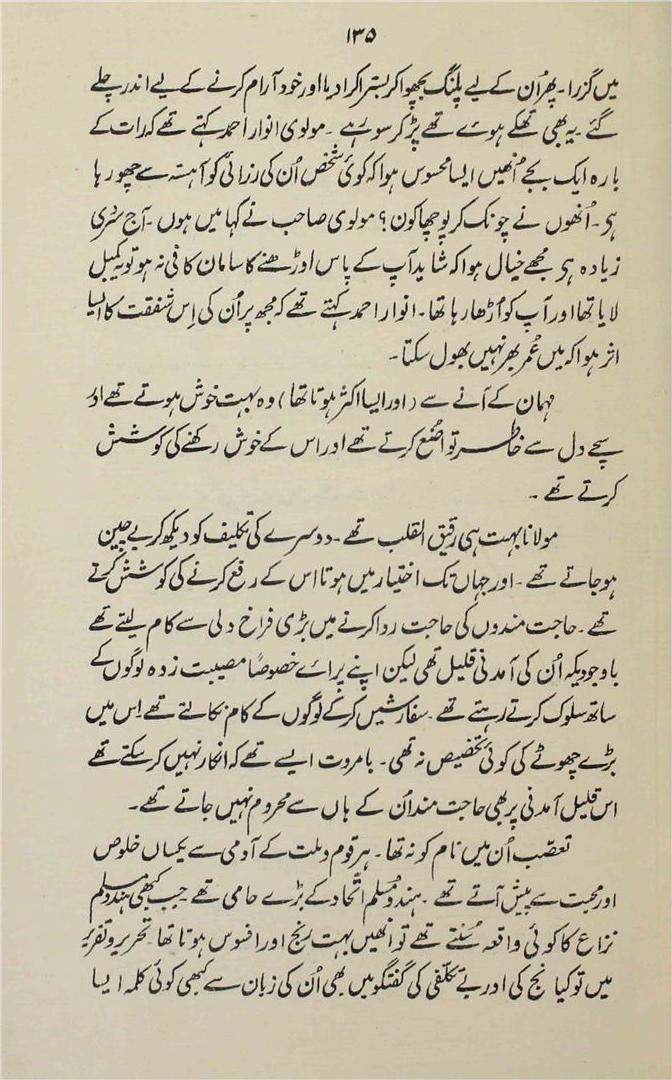 ۱۳۵
میں گزرا۔ پھر اُن کے لیے پلنگ بچھوا کر بستر کرا دیا اور خود آرام کرنے کے لیے اندر چلے
گئے ۔ یہ بھی تھکے ہوئے تھے پڑ کر سو رہے ۔ مولوی انوار احمد کہتے تھے کہ رات کے
بارہ ایک بجے اُنھیں ایسا محسوس ہوا کہ کوئی شخص اُن کی رزائی کو آہستہ سے چھو رہا
ہی۔ اُنھوں نے چونک کر پوچھا کون؟ مولوی صاحب نے کہا میں ہوں ۔ آج سردی
زیادہ ہی مجھے خیال ہوا کہ شاید آپ کے پاس اوڑھنے کا سامان کافی نہ ہو تو یہ کمبل
لایا تھا اور آپ کو اُڑھا رہا تھا۔ انوار احمد کہتے تھے کہ مجھ پر اُن کی اِس شفقت کا ایسا
اثر ہوا کہ میں عُمر بھر نہیں بھول سکتا ۔
مہمان کے آنے سے (اور ایسا اکثر ہوتا تھا) وہ بہت خوش ہوتے تھے اور
سچے دل سے خاطر تواضع کرتے تھے اور اس کے خوش رکھنے کی کوشش
کرتے تھے ۔
مولانا بہت ہی رقیق القلب تھے ۔ دوسرے کی تکلیف کو دیکھ کر بے چین
ہو جاتے تھے ۔ اور جہاں تک اختیار میں ہوتا اس کے رفع کرنے کی کوشش کرتے
تھے ۔ حاجت مندوں کی حاجت روا کرنے میں بڑی فراخ دلی سے کام لیتے تھے
باوجودیکہ اُن کی آمدنی قلیل تھی لیکن اپنے پرائے خصوصاً مصیبت زدہ لوگوں کے
ساتھ سلوک کرتے رہتے تھے ۔ سفارشیں کر کے لوگوں کے کام نکالتے تھے اِس میں
بڑے چھوٹے کی کوئی تخصیص نہ تھی ۔ بامروت ایسے تھے کہ انکار نہیں کر سکتے تھے
اس قلیل آمدنی پر بھی حاجت مند اُن کے ہاں سے محروم نہیں جاتے تھے ۔
تعصّب اُن میں نام کو نہ تھا ۔ ہر قوم و ملت کے آدمی سے یکساں خلوص
اور محبت سے پیش آتے تھے ۔ ہندو مُسلم اتّحاد کے بڑے حامی تھے جب کبھی ہندو مسلم
نزاع کا کوئی واقعہ سُنتے تھے تو انھیں بہت رنج اور افسوس ہوتا تھا ۔ تحریر و تقریر
میں تو کیا نج کی اور بے تکلّفی کی گفتگو میں بھی اُن کی زبان سے کبھی کوئی کلمہ ایسا